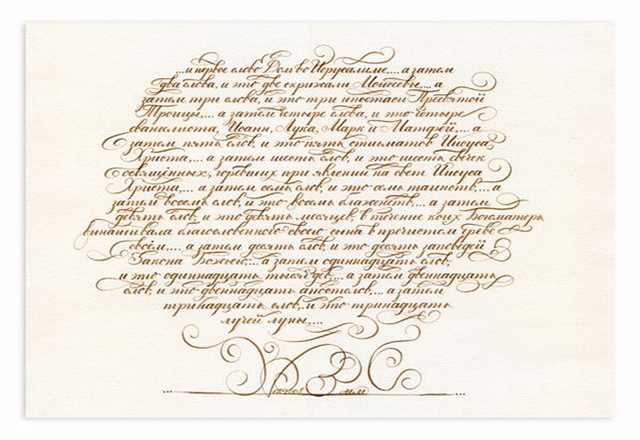 ...и первое слово Дом во Иерусалиме,... а затем
два слова, и это две скрижали Моисеевы,... а
затем три слова, и это три ипостаси Пресвятой
Троицы,... а затем четыре слова, и это четыре
евангелиста, Иоанн, Лука, Марк и Матфей,... а
затем пять слов, и это пять стигматов Иисуса
Христа,... а затем шесть слов, и это шесть свечек
освящённых, горевших при явлении на свет Иисуса
Христа,... а затем семь слов, и это семь таинств,... а
затем восемь слов, и это восемь блаженств,... а затем
девять слов, и это девять месяцев, в течение коих Богоматерь
вынашивала благословенного своего сына в пречистом чреве
своём,... а затем десять слов, и это десять заповедей
Закона Божьего,... а затем одиннадцать слов,
и это одиннадцать тысяч дев,... а затем двенадцать
слов, и это двенадцать апостолов,... а затем
тринадцать слов, и это тринадцать
лучей луны,...